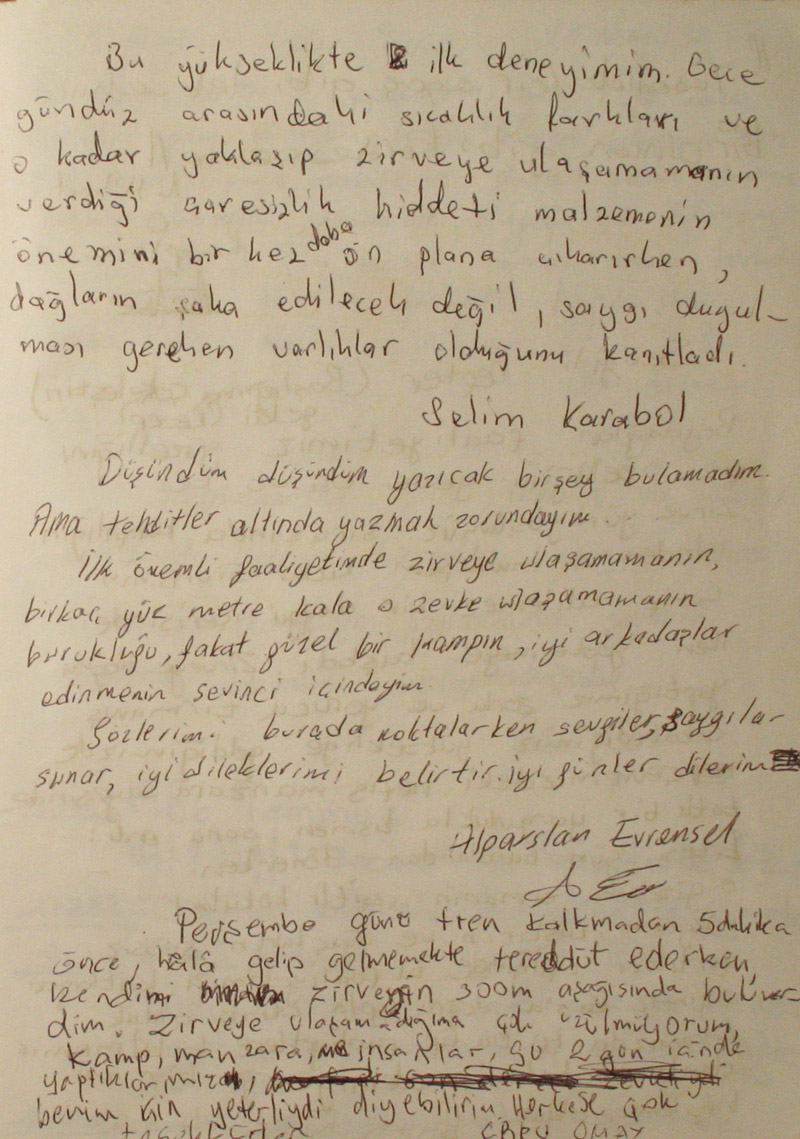 Bu yükseklikte ilk deneyimim. Gece
gündüz arasındaki sıcaklık farkları ve
o kadar yaklaşıp zirveye ulaşamamanın
verdiği çaresizlik hiddeti malzemenin
önemini bir kez daha ön plana çıkarırken,
dağların şaka edilecek değil, saygı duyul-
ması gereken varlıklar olduğunu kanıtladı.
Selim Karabol
Düşündüm düşündüm yazıcak birşey bulamadım.
Ama tehditler altında yazmak zorundayım...
İlk önemli faaliyetimde zirveye ulaşamamanın,
birkaç yüz metre kala o zevke ulaşamamanın
burukluğu, fakat güzel bir kampın, iyi arkadaşlar
edinmenin sevinci içindeyim
Sözlerimi burada noktalarken sevgiler, saygılar
sunar, iyi dileklerimi belirtir. iyi günler dilerim
Alparslan Evrensel
Perşembe günü tren kalkmadan 5 dakika
önce, hâlâ gelip gelmemekte tereddüt ederken,
kendimi zirvenin 300m aşağısında buluver-
dim. Zirveye ulaşamadığıma çok üzülmüyorum,
kamp, manzara, insanlar, şu 2 gün içinde
yaptıklarımız,
benim için yeterliydi diyebilirim. Herkese çok
teşekkürler